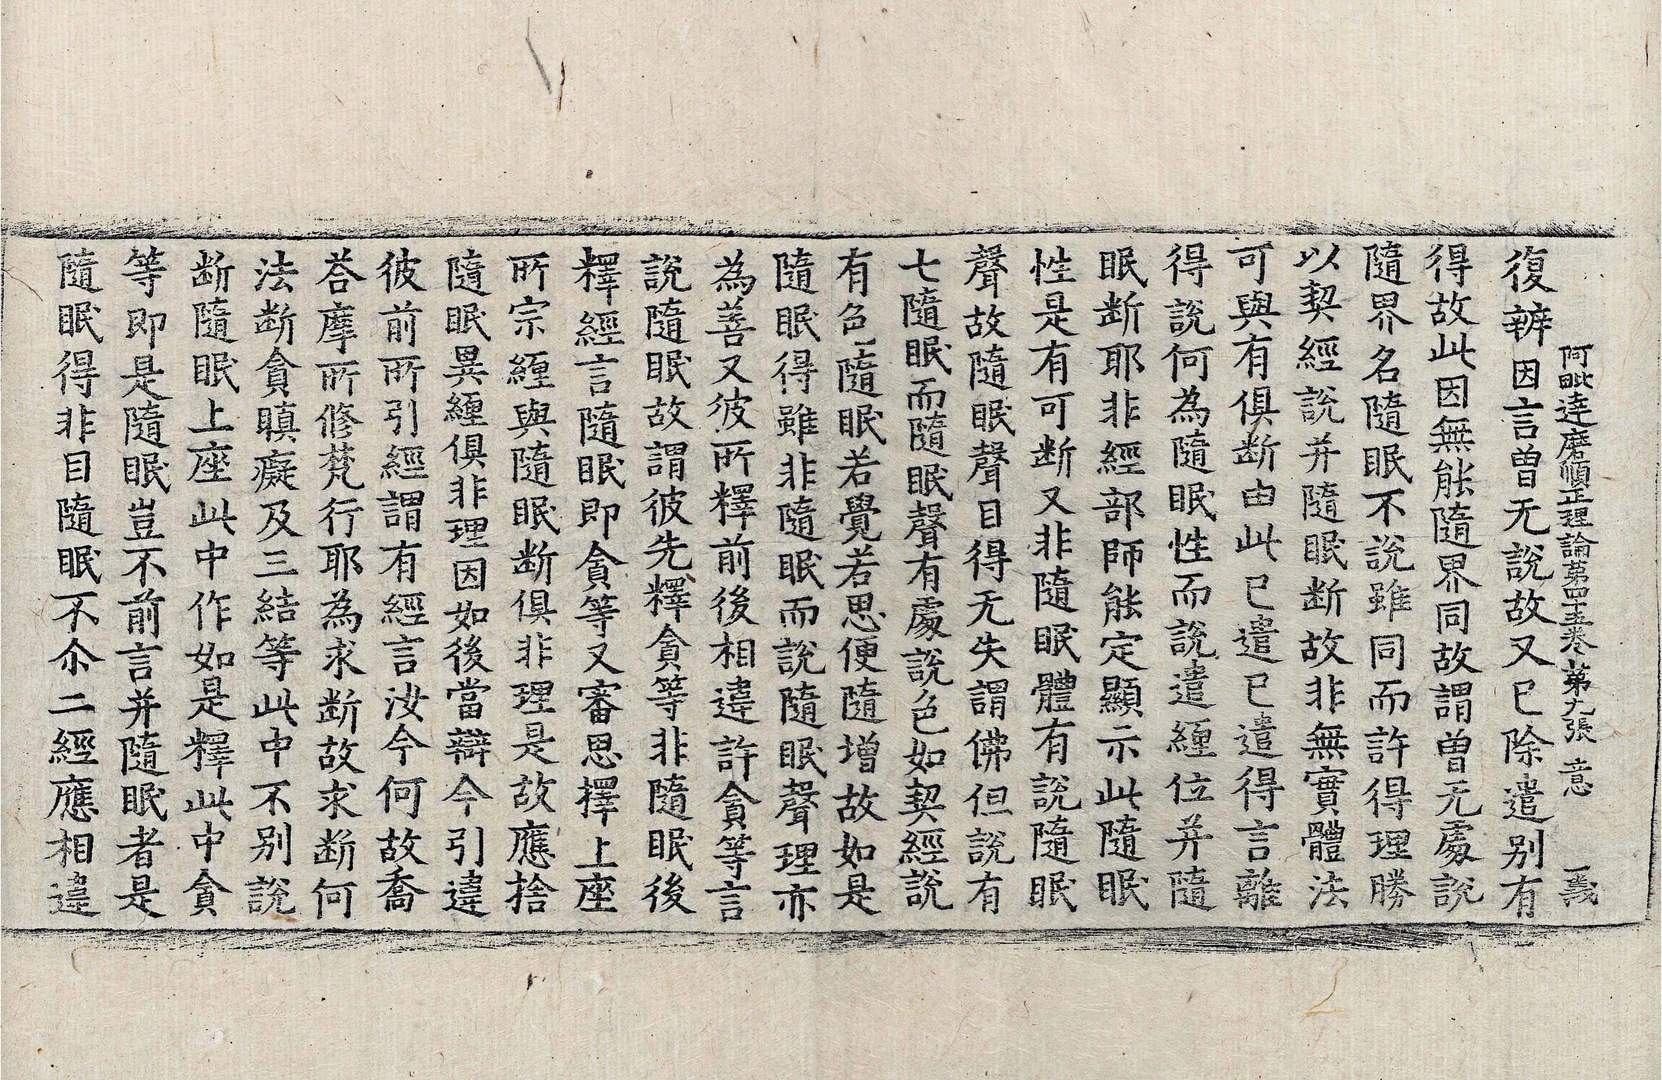 阿毗達磨順正理論第四十五卷 第九張 意 義
復辨因言曾无說故又已除遣别有
得故此因無能隨界同故謂曾无處說
隨界名隨眠不說雖同而許得理勝
以契經說并隨眠断故非無實體法
可與有俱断由此已遣已遣得言離
得說何為隨眠性而說遣纏位并隨
眠断耶非經部師能定顯示此隨眠
性是有可断又非隨眠體有說隨眠
聲故隨眠聲目得无失謂佛但說有
七隨眠而隨眠聲有處說色如契經說
有色隨眠若覺若思便隨增故如是
隨眠得雖非隨眠而說隨眠聲理亦
為善又彼所釋前後相違許貪等言
說隨眠故謂彼先釋貪等非隨眠後
釋經言隨眠即貪等又審思擇上座
所宗纏與隨眠断俱非理是故應捨
隨眠異纏俱非理因如後當辯今引違
彼前所引經謂有經言汝今何故喬
荅摩所修梵行耶為求断故求断何
法断貪瞋癡及三結等此中不别說
断隨眠上座此中作如是釋此中貪
等即是隨眠豈不前言并隨眠者是
隨眠得非目隨眠不尒二經應相違